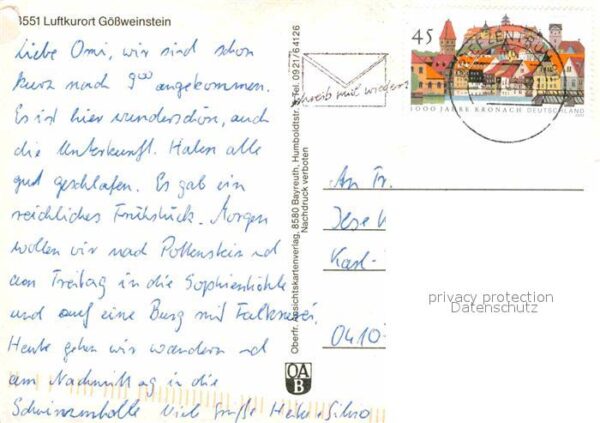 8551 Luftkurort Gößweinstein
Liebe Omi, wir sind schon
kurz nach 9⁰⁰ angekommen.
Es ist hier wunderschön, auch
die Unterkunft. Haben alle
gut geschlafen. Es gab ein
reichliches Frühstück. Morgen
wollen wir nach Pottenstein und
am Freitag in die Sophienhöhle
und auf eine Burg mit Falknerei.
Heute gehen wir wandern und
am Nachmittag in die
Schwimmhalle Viele Grüße Heike + Silvio
Oberfr. Ansichtskartenverlag, 8580 Bayreuth, Humboldtstr. Tel. 0921/64126
Nachdruck verboten
OA
B
schreib mal wieder!
45
1000 JAHRE KRONACH DEUTSCHLAND
An Fr.
Karl-
0410
privacy protection
Datenschutz